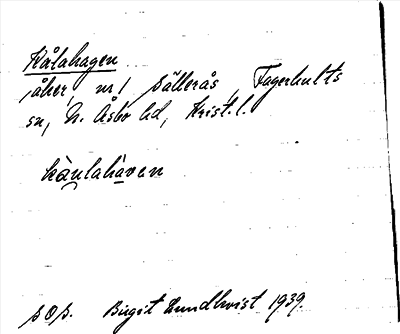 Kålahagen
åker, nr 1 Sällerås, Fagerhults
sn, N. Åsbo hd, Krist. l.
kau̯lahaven
sOs. Birgit Lundkvist 1939